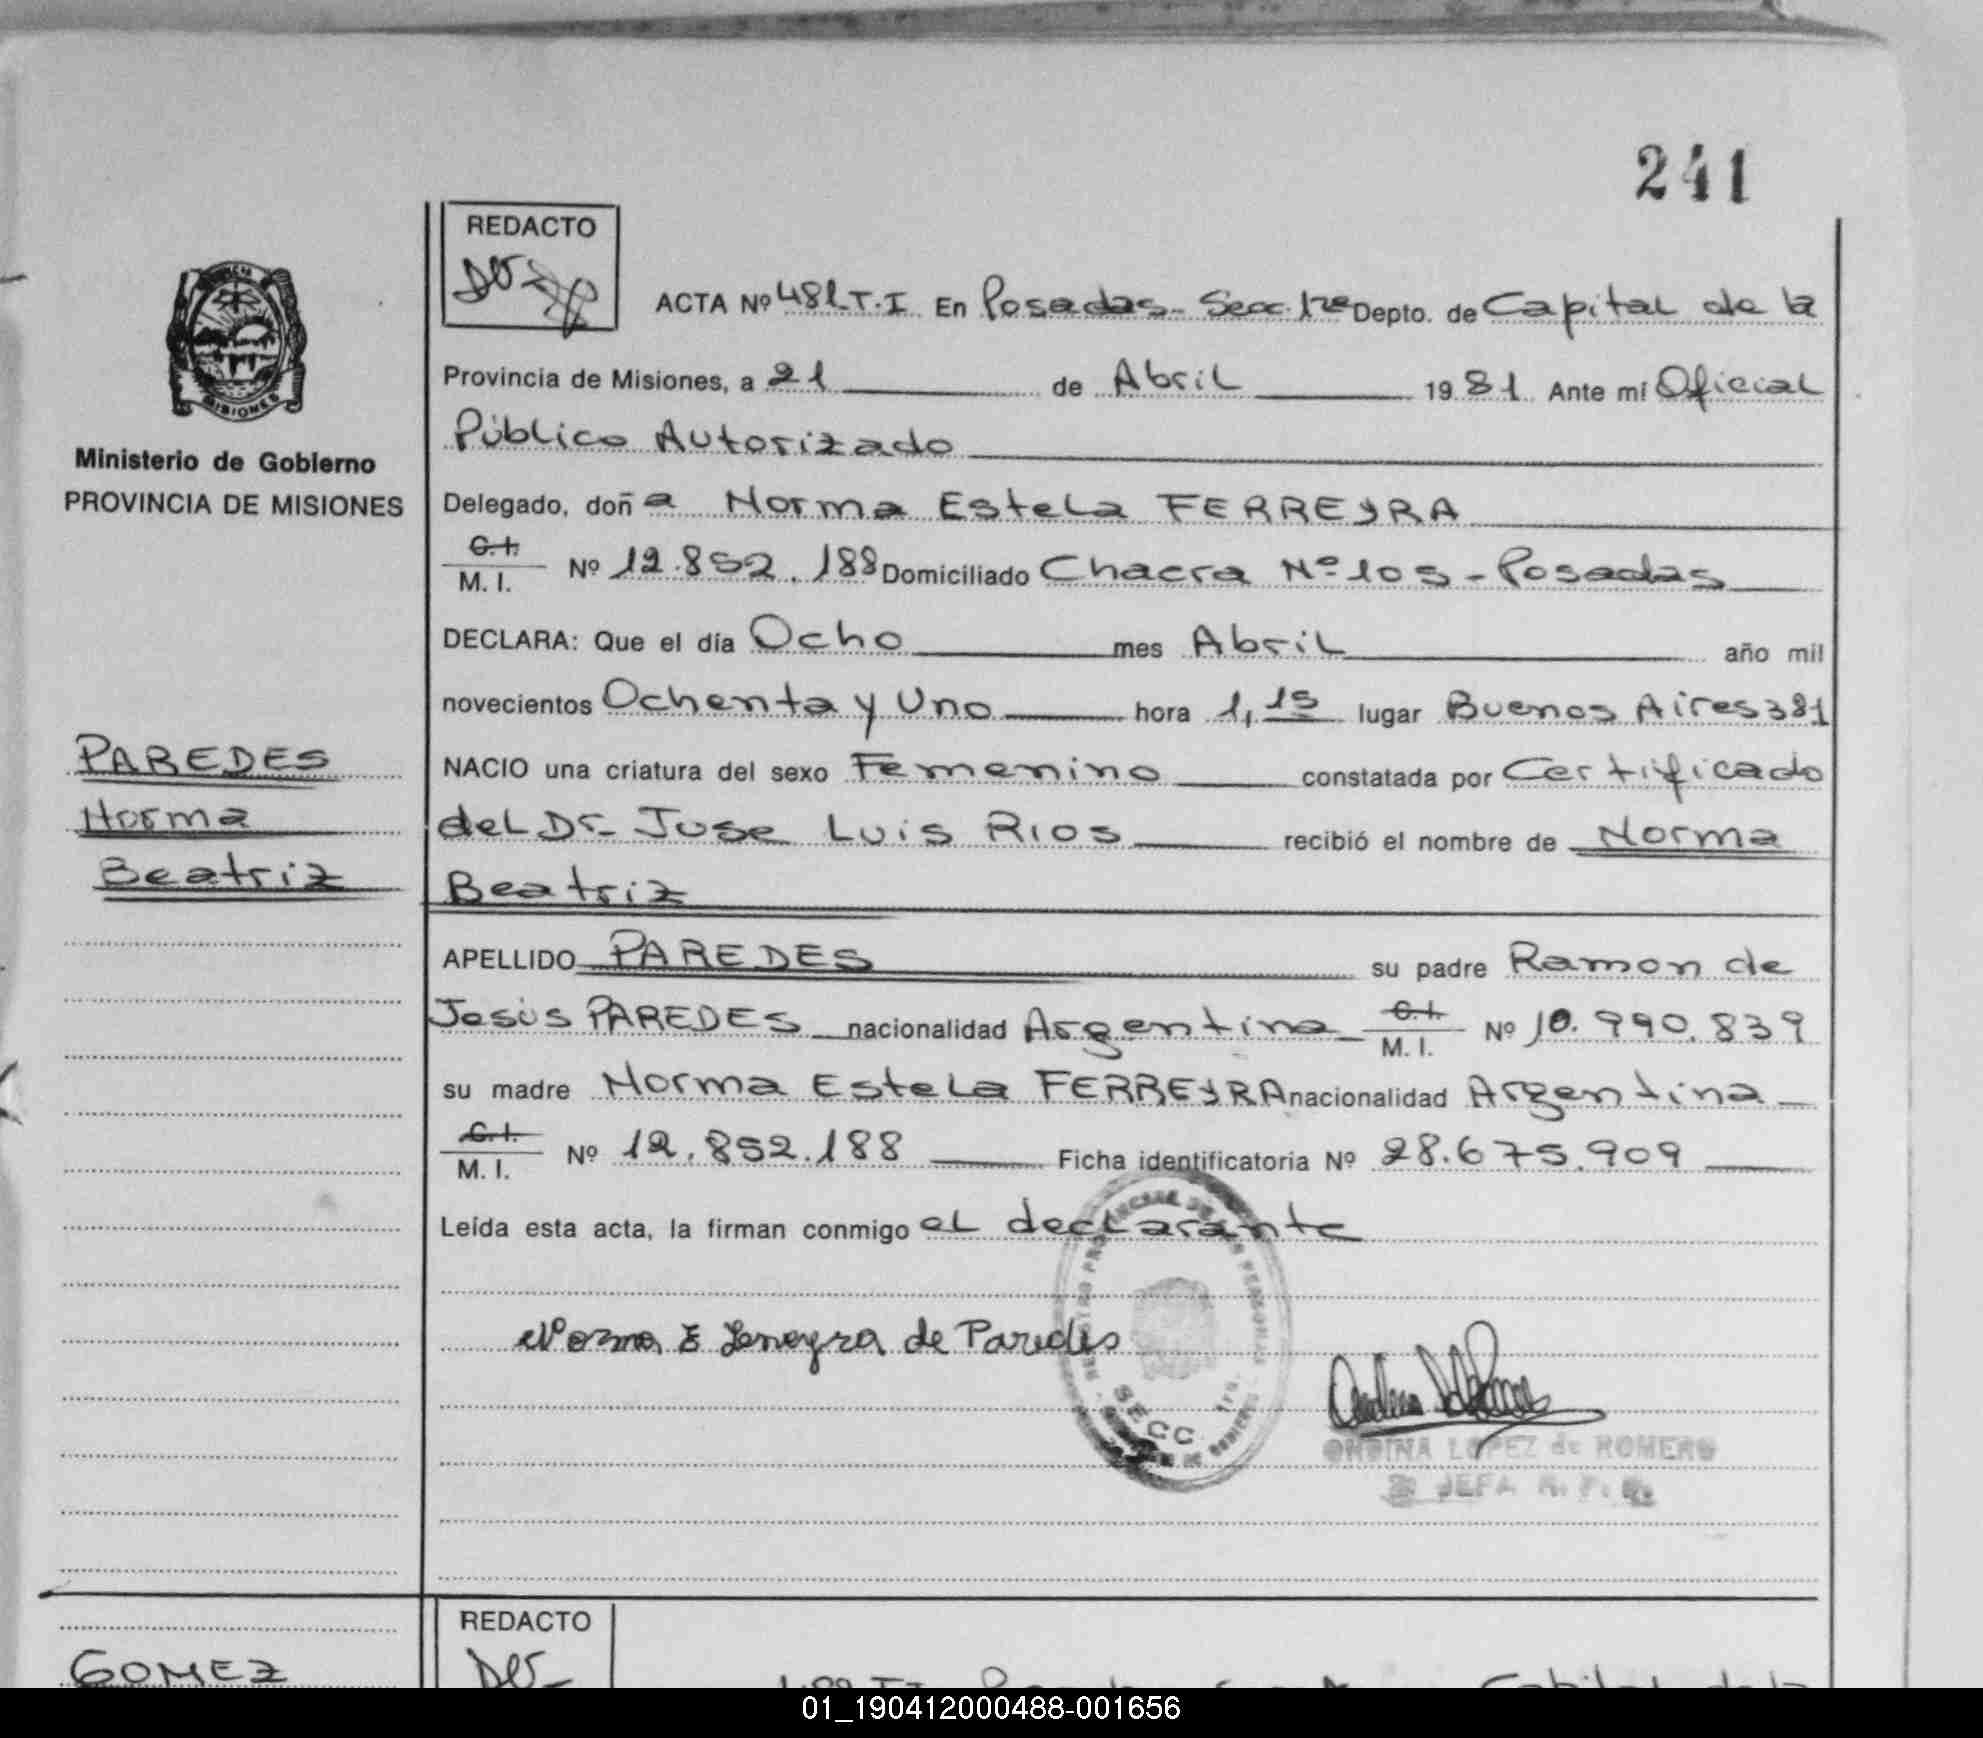 241
REDACTO
ACTA Nº 481 T.I. En Posadas - Secc 1re Depto. de Capital de la
Provincia de Misiones, a 21 de Abril 1981 Ante mí Oficial
Público Autorizado
Ministerio de Gobierno
PROVINCIA DE MISIONES
Delegado, doña Norma Estela FERREYRA
C.I.
M. I. Nº 12.852.188 Domiciliado Chacra Nº 105 - Posadas
DECLARA: Que el día Ocho mes Abril año mil
novecientos Ochenta y Uno hora 1,15 lugar Buenos Aires 381
PAREDES
Norma
Beatriz
NACIO una criatura del sexo Femenino constatada por Certificado
del Dr. Jose Luis Rios recibió el nombre de Norma
Beatriz
APELLIDO PAREDES su padre Ramon de
Jesús PAREDES nacionalidad Argentina C.I. M. I. Nº 10.990.839
su madre Norma Estela FERREYRA nacionalidad Argentina
C.I.
M. I. Nº 12.852.188 Ficha identificatoria Nº 28.675.909
Leída esta acta, la firman conmigo el declarante
Norma E Ferreyra de Paredes
SECC 1ra.
ONDINA LOPEZ de ROMERO
JEFA R. P. P.
REDACTO
GOMEZ
01_190412000488-001656